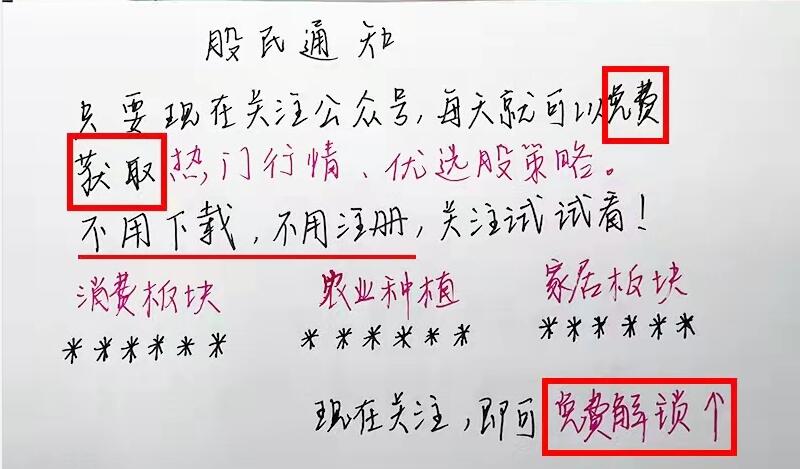 股民通知
只要现在关注公众号,每天就可以免费
获取热门行情、优选股策略。
不用下载,不用注册,关注试试看!
消费板块 农业种植 家居板块
****** ****** ******
现在关注,即可免费解锁个